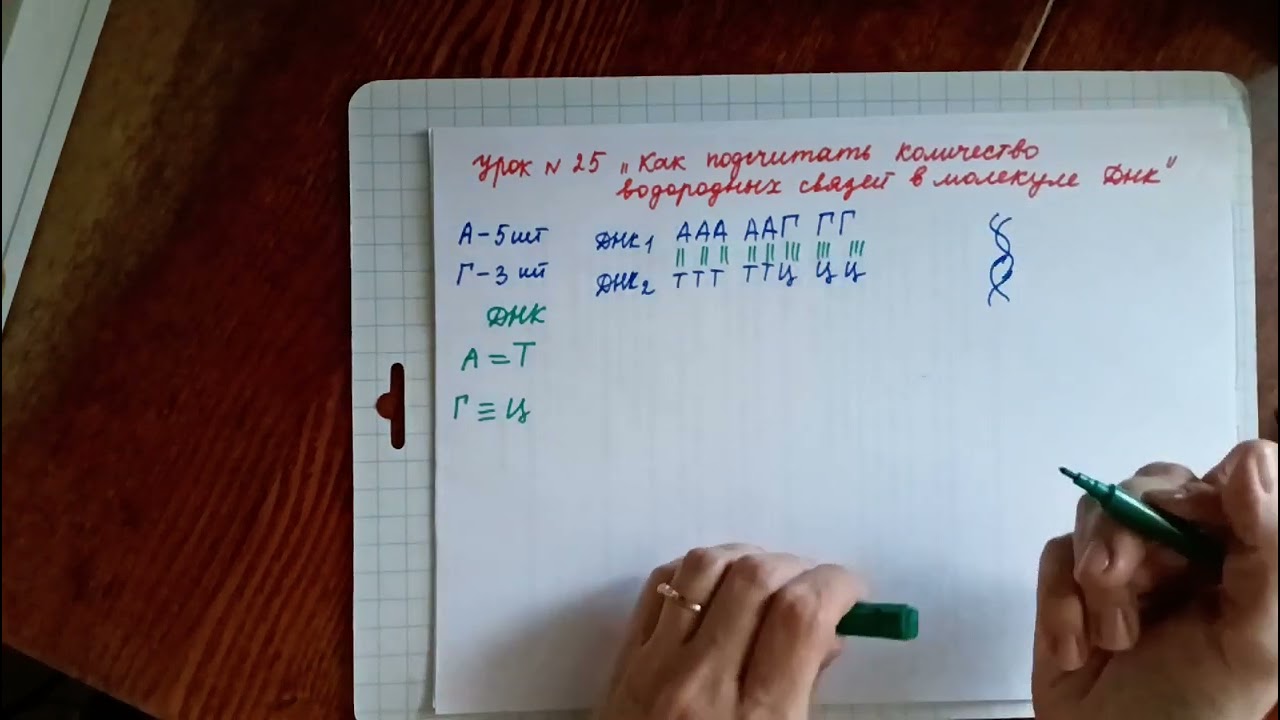 Урок N 25 „Как подсчитать количество
водородных связей в молекуле ДНК"
А-5шт
Г-3 шт
ДНК1 ААА ААГ ГГ
ДНК2 ТТТ ТТЦ ЦЦ
ДНК
А=Т
Г≡Ц